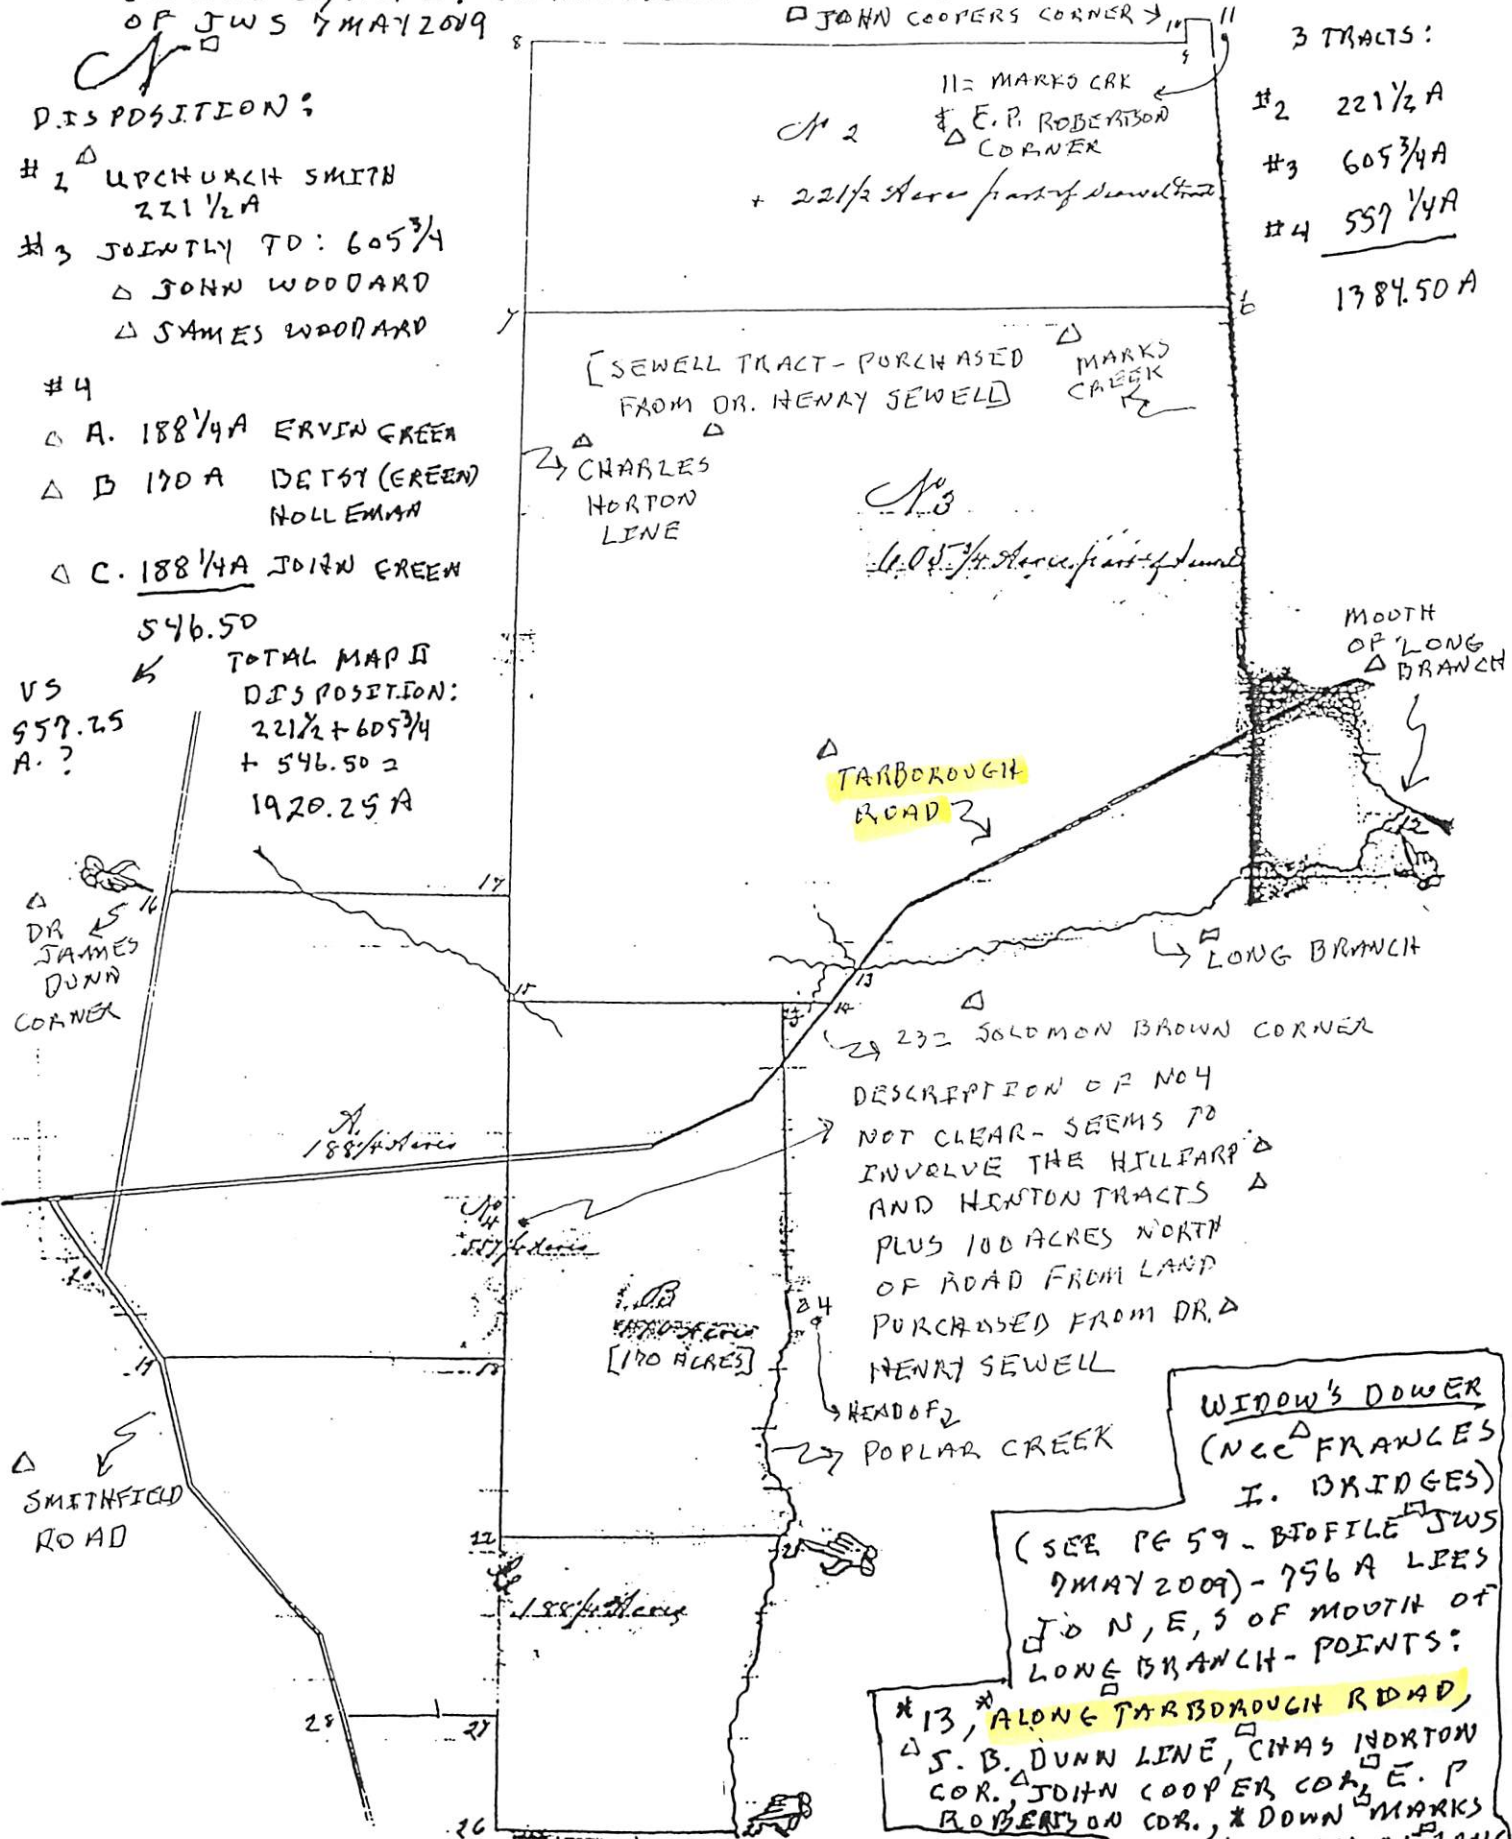 OF JWS 7 MAY 2009
N
DISPOSITION:
#2 UPCHURCH SMITH
221 1/2 A
#3 JOINTLY TO: 605 3/4
JOHN WOODARD
JAMES WOODARD
#4
A. 188 1/4 A ERVIN GREEN
B 170 A BETSY (GREEN)
HOLLEMAN
C. 188 1/4 A JOHN GREEN
546.50
VS
557.25
A. ?
TOTAL MAP II
DISPOSITION:
221 1/2 + 605 3/4
+ 546.50 =
1920.25 A
JOHN COOPERS CORNER
8
10
9
11
11 = MARKS CRK
& E. P. ROBERTSON
CORNER
No 2
+ 221 1/2 Acres part of Sewel Tract
3 TRACTS:
#2 221 1/2 A
#3 605 3/4 A
#4 557 1/4 A
1384.50 A
7
6
[SEWELL TRACT - PURCHASED
FROM DR. HENRY SEWELL]
MARKS
CREEK
CHARLES
HORTON
LINE
No 3
605 3/4 Acres part of Sewel
MOUTH
OF LONG
BRANCH
TARBOROUGH
ROAD
12
16
17
DR
JAMES
DUNN
CORNER
LONG BRANCH
13
14
15
23 = SOLOMON BROWN CORNER
DESCRIPTION OF NO 4
NOT CLEAR - SEEMS TO
INVOLVE THE HILLIARD
AND HINTON TRACTS
PLUS 100 ACRES NORTH
OF ROAD FROM LAND
PURCHASED FROM DR.
HENRY SEWELL
A.
188 1/4 Acres
No 4
557 1/4 Acres
20
B
[170 ACRES]
24
19
18
HEAD OF
POPLAR CREEK
SMITHFIELD
ROAD
22
21
C
188 1/4 Acres
28
27
26
25
WIDOW'S DOWER
(Nee FRANCES
I. BRIDGES)
(SEE PG 59 - BIOFILE JWS
7 MAY 2009) - 756 A LIES
TO N, E, S OF MOUTH OF
LONG BRANCH - POINTS:
*13, *ALONG TARBOROUGH ROAD,
S. B. DUNN LINE, CHAS HORTON
COR., JOHN COOPER COR, E. P
ROBERTSON COR., * DOWN MARKS